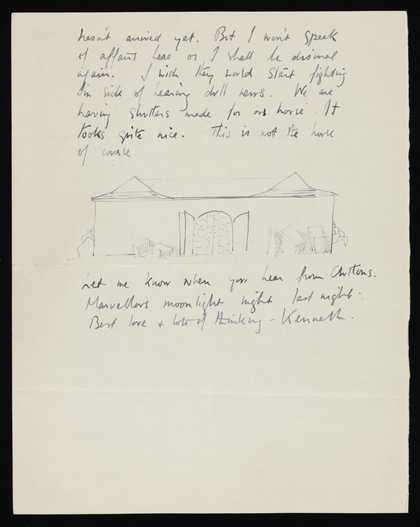 hasn't arrived yet. But I won't speak
of affairs here or I shall be dismal
again. I wish they would start fighting
I'm sick of hearing dull news. We are
having shutters made for our house. It
looks quite nice. This is not the house
of course
Let me know when you hear from
Marvellous moonlight night last night.
Best love & lots of thinking - Kenneth.